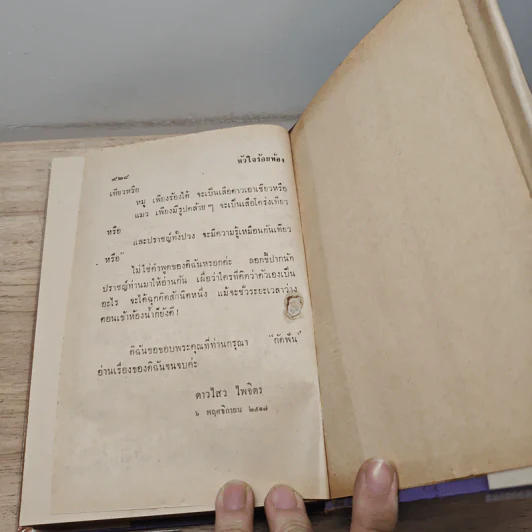 ๙๒๔ หัวใจร้อยห้อง
เทียวหรือ
หมู เพียงร้องได้ จะเป็นเสือดาวเอาเชียวหรือ
แมว เพียงมีรูปคล้าย ๆ จะเป็นเสือโคร่งเทียว
หรือ
และปราชญ์ทั้งปวง จะมีความรู้เหมือนกันเทียว
หรือ"
ไม่ใช่คำพูดของดิฉันหรอกค่ะ ลอกขี้ปากนัก
ปราชญ์ท่านมาให้อ่านกัน เผื่อว่าใครที่คิดว่าตัวเองเป็น
อะไร จะได้ฉุกคิดสักนิดหนึ่ง แม้จะชั่วระยะเวลาว่าง
ตอนเข้าห้องน้ำก็ยังดี !
ดิฉันขอขอบพระคุณที่ท่านกรุณา "กัดฟัน"
อ่านเรื่องของดิฉันจนจบค่ะ
ดาวไสว ไพจิตร
๖ พฤศจิกายน ๒๕๑๗